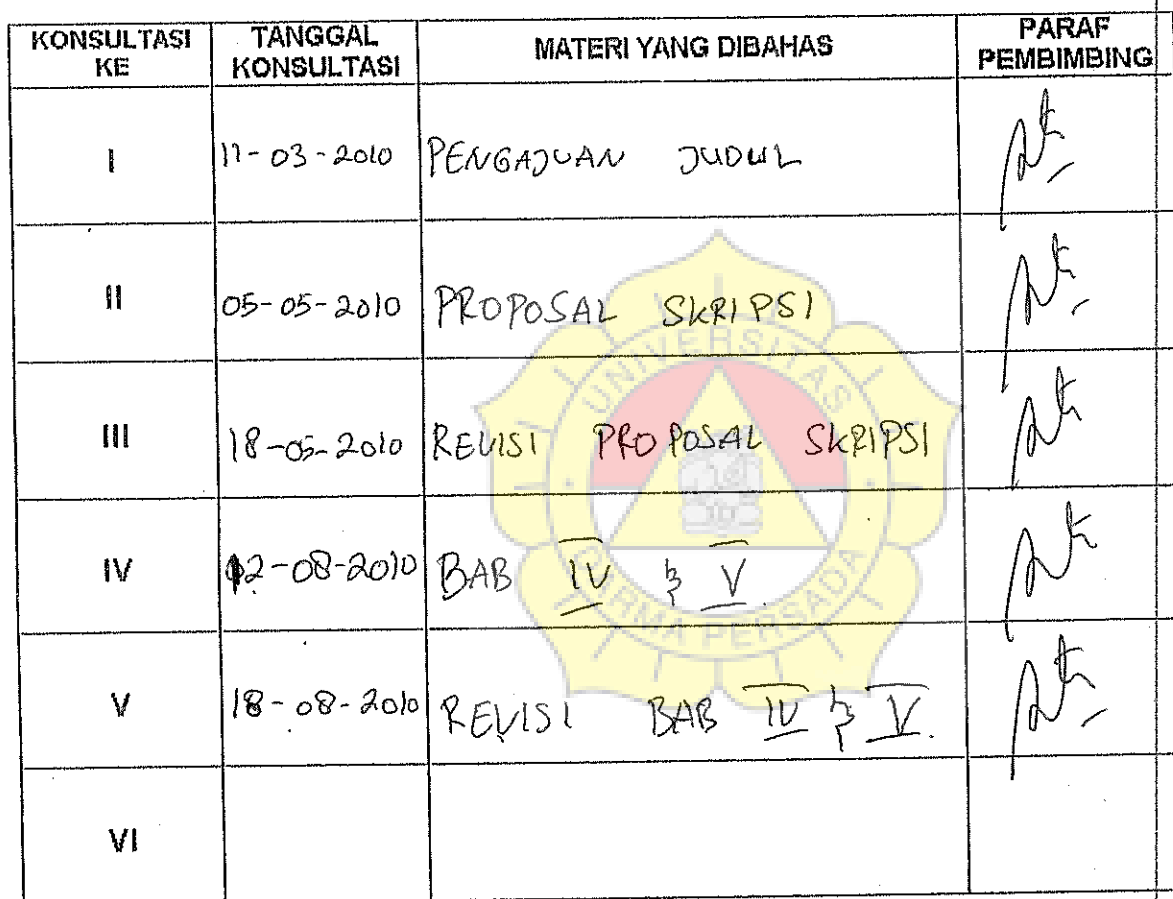 KONSULTASI KE TANGGAL KONSULTASI MATERI YANG DIBAHAS PARAF PEMBIMBING
I 11-03-2010 PENGAJUAN JUDUL
II 05-05-2010 PROPOSAL SKRIPSI
III 18-05-2010 REVISI PROPOSAL SKRIPSI
IV 12-08-2010 BAB IV & V.
V 18-08-2010 REVISI BAB IV & V.
VI
UNIVERSITAS
DARMA PERSADA